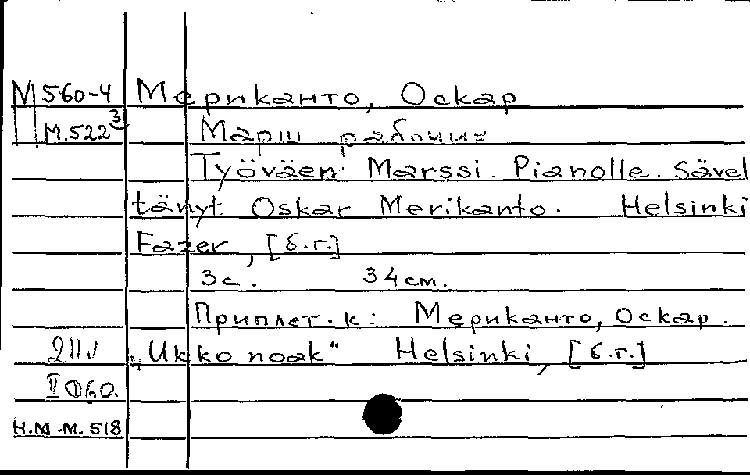 М560-4 Мериканто, Оскар
М.522³ Марш рабочих
Työväen Marssi. Pianolle. Sävel
tänyt Oskar Merikanto. Helsinki
Fazer, [б.г.]
3с. 34см.
Приплет. к: Мериканто, Оскар.
„Ukko noak“ Helsinki, [б.г.]
Н.М-М. 518